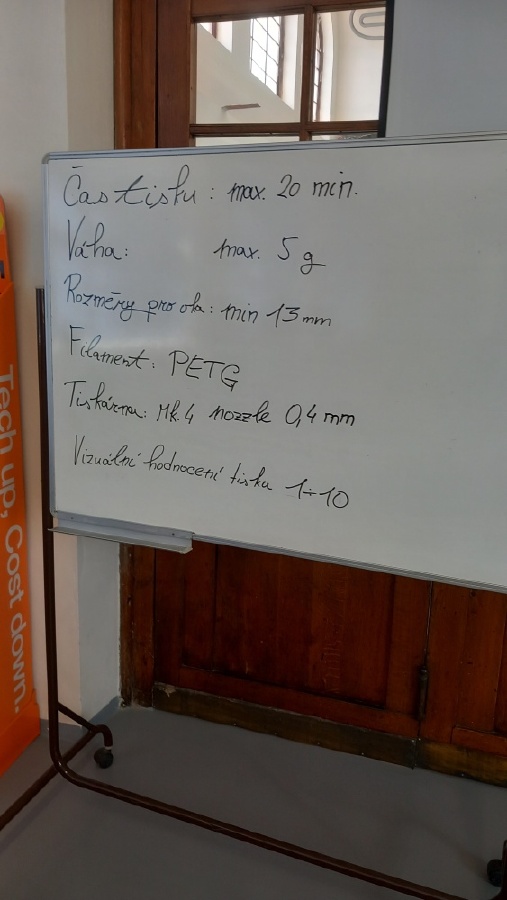 Čas tisku: max. 20 min.
Váha: max. 5 g
Rozměry pro oka: min 13 mm
Filament: PETG
Tiskárna: Mk.4 nozzle 0,4 mm
Vizuální hodnocení tisku 1÷10
Tech up, Cost down.